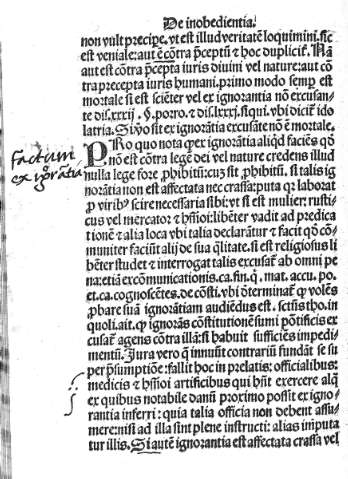 De inobedientia.
non vult precipe. vt est illud veritatẽ loquimini. sic
est veniale: aut ẽ cõtra p̃ceptũ & hoc duplicit᷑. Nã
aut est cõtra p̃cepta iuris diuini vel nature: aut cõ
tra precepta iuris humani. primo modo semp est
mortale si est sciẽter vel ex ignorantia nõ excusan-
te dis. xxxij. §. porro. & dis. lxxxj. si qui. vbi dicit᷑ ido
latria. Si vo sit ex ignorãtia excusãte nõ ẽ mortale.
PRo quo nota ꝙ ex ignorãtia aliqd faciẽs qd
nõ est cõtra legẽ dei vel nature credens illud
nulla lege fore ꝓhibitũ: cuz sit ꝓhibitũ. si talis ig
norãtia non est affectata nec crassa: puta qr laborat
ꝓ virib⁹ scire necessaria sibi: vt si est mulier: rusti-
cus vel mercator & hmõi: libẽter vadit ad predica
tionẽ & alia loca vbi talia declarãtur & facit qd cõ-
muniter faciũt alij de sua q̃litate. si est religiosus li
bẽter studet & interrogat talis excusat᷑ ab omni pe
na: etiã excõmunicationis. ca. fin. q̃. mat. accu. po.
et. ca. cognoscẽtes. de cõsti. vbi determinat᷑ ꝙ volẽs
ꝓbare suã ignorãtiam audiẽdus est. sctũs tho. in
quoli. ait. ꝙ ignorãs cõstitutionẽ sumi põtificis ex
cusat᷑ agens cõtra illã: si habuit sufficiẽs impedi-
mentũ. Iura vero q̃ innuũt contrariũ fundãt se su
per p̃sumptiõe: fallit hoc in prelatis: officialibus:
medicis & hmõi artificibus qui hñt exercere alqd
ex quibus notabile danũ proximo possit ex igno-
rantia inferri: quia talia officia non debent assu-
mere: nisi ad illa sint plene instructi: alias imputa
tur illis. Si autẽ ignorantia est affectata crassa vel
factum
ex igorãtia